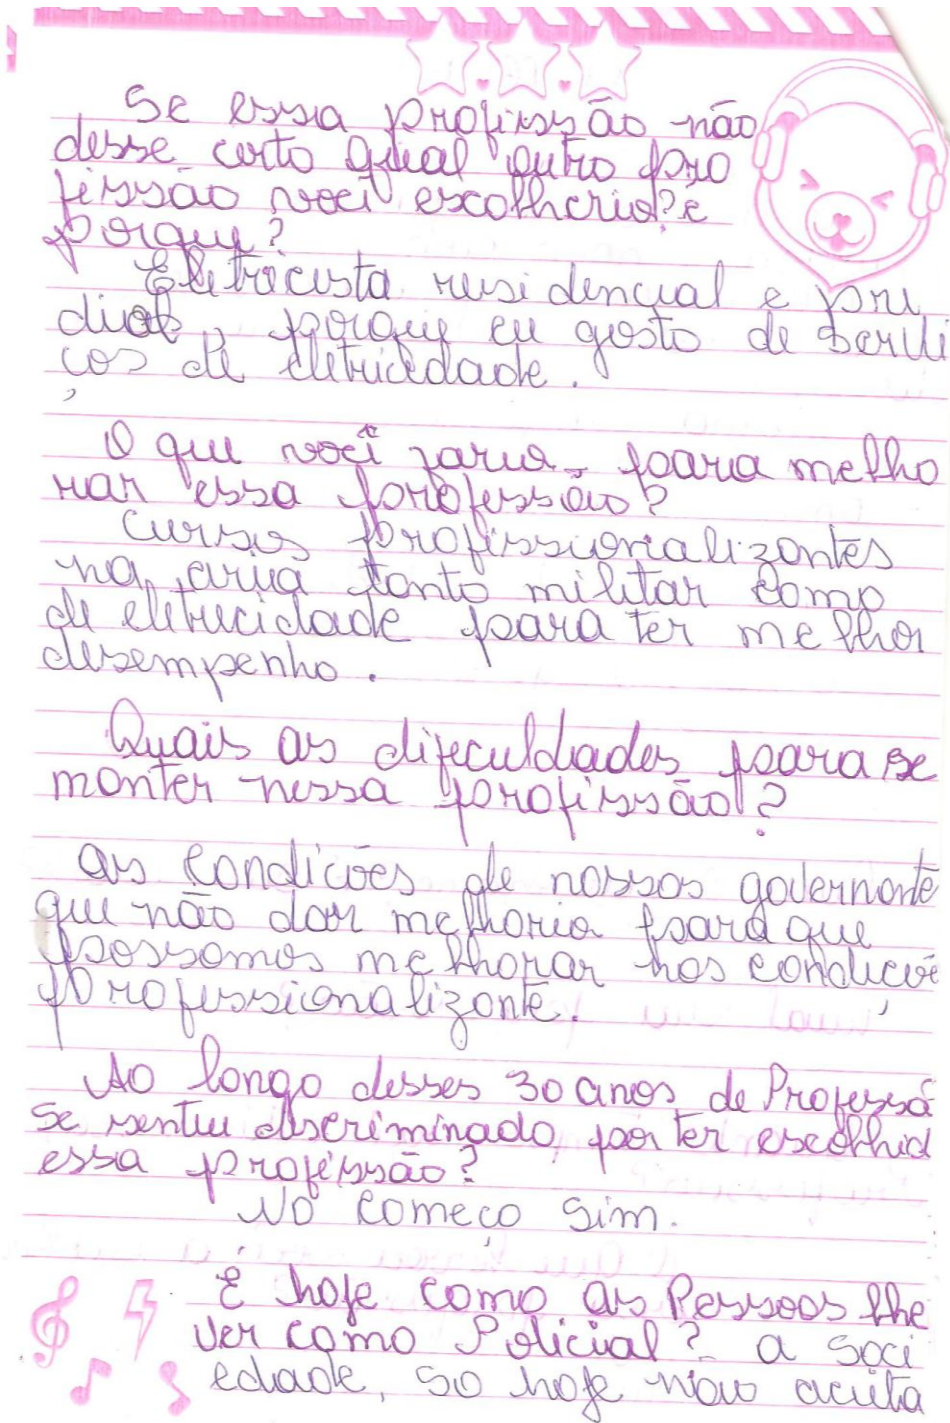 Se essa profissão não
desse certo qual outro pro
fissão você escolherio? e
porque?
Eletricista residencial e pre
dial, porque eu gosto de servi
ços de eletricidade.
O que você faria para melho
rar essa profissão?
Cursos profissionalizontes
na aria tonto militar como
de eletricidade para ter melhor
desempenho.
Quais as dificuldades para se
monter nessa profissão?
as condições de nossos governonte
que não dar melhoria para que
possomos melhorar nas condiçõe
profissionalizonte.
Ao longo desses 30 anos de Profissã
se sentiu discriminado por ter escolhid
essa profissão?
No começo sim.
E hoje como as Pessoas lhe
ver como Policial? a soci
edade, so hoje não aceita